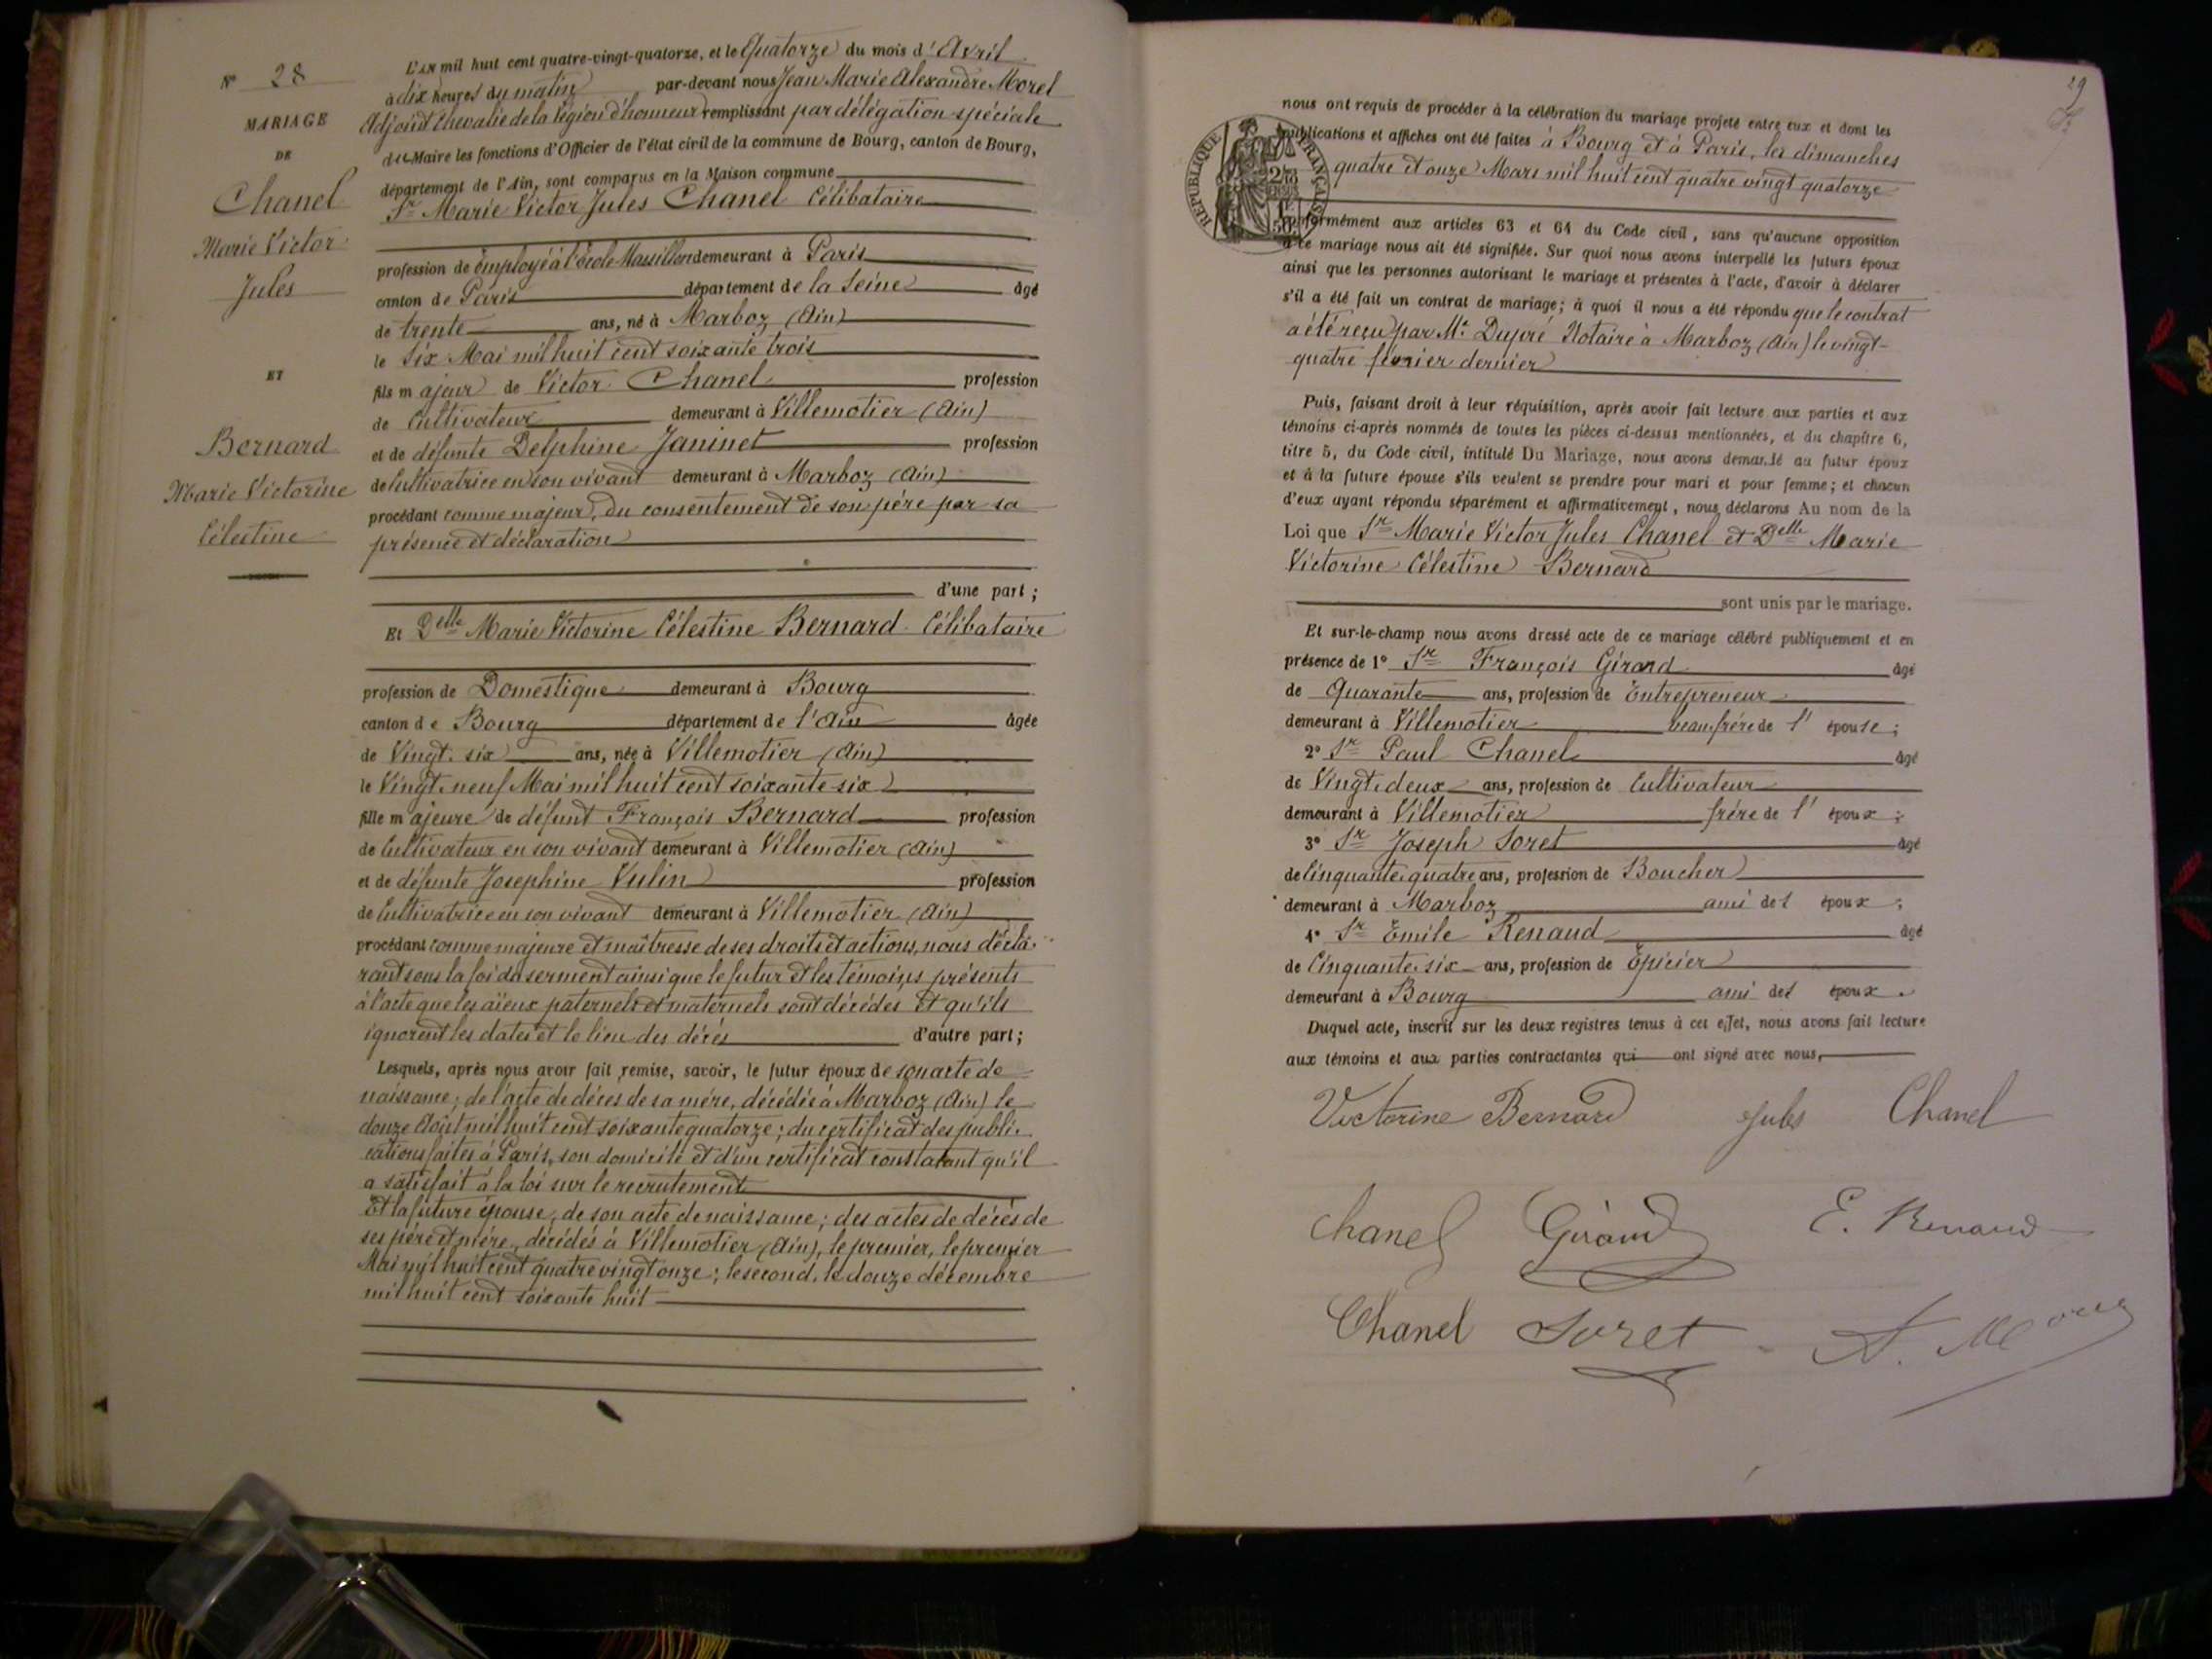 N° 28
MARIAGE
DE
Chanel
Marie Victor
Jules
ET
Bernard
Marie Victorine
Célestine
L'an mil huit cent quatre-vingt-quatorze, et le Quatorze du mois d'Avril
à dix heures du matin par-devant nous Jean Marie Alexandre Morel
Adjoint Chevalie de la légion d'honneur remplissant par délégation spéciale
du Maire les fonctions d'Officier de l'état civil de la commune de Bourg, canton de Bourg,
département de l'Ain, sont comparus en la Maison commune
Sr Marie Victor Jules Chanel Célibataire
profession de Employé à l'école Massillon demeurant à Paris
canton de Paris département de la Seine âgé
de trente ans, né à Marboz (Ain)
le Six Mai mil huit cent soixante trois
fils majeur de Victor Chanel profession
de Cultivateur demeurant à Villemotier (Ain)
et de défunte Delphine Janinet profession
de Cultivatrice en son vivant demeurant à Marboz (Ain)
procédant comme majeur, du consentement de son père par sa
présence et déclaration
d'une part ;
Et Delle Marie Victorine Célestine Bernard Célibataire
profession de Domestique demeurant à Bourg
canton de Bourg département de l'Ain âgée
de Vingt-six ans, née à Villemotier (Ain)
le Vingt-neuf Mai mil huit cent soixante-six
fille majeure de défunt François Bernard profession
de Cultivateur en son vivant demeurant à Villemotier (Ain)
et de défunte Josephine Vulin profession
de Cultivatrice en son vivant demeurant à Villemotier (Ain)
procédant comme majeure et maîtresse de ses droits et actions, nous décla-
rant sous la foi du serment ainsi que le futur et les témoins présents
à l'acte que les aïeux paternels et maternels sont décédés et qu'ils
ignorent les dates et le lieu des décès d'autre part ;
Lesquels, après nous avoir fait remise, savoir, le futur époux de son acte de
naissance ; de l'acte de décès de sa mère, décédée à Marboz (Ain) le
douze Août mil huit cent soixante quatorze ; du certificat des publi-
cations faites à Paris, son domicile et d'un certificat constatant qu'il
a satisfait à la loi sur le recrutement
Et la future épouse, de son acte de naissance ; des actes de décès de
ses père et mère, décédés à Villemotier (Ain), le premier, le premier
Mai mil huit cent quatre vingt onze ; le second, le douze décembre
mil huit cent soixante huit
29
RÉPUBLIQUE FRANÇAISE
nous ont requis de procéder à la célébration du mariage projeté entre eux et dont les
publications et affiches ont été faites à Bourg et à Paris, les dimanches
quatre et onze Mars mil huit cent quatre vingt quatorze
conformément aux articles 63 et 64 du Code civil, sans qu'aucune opposition
à ce mariage nous ait été signifiée. Sur quoi nous avons interpellé les futurs époux
ainsi que les personnes autorisant le mariage et présentes à l'acte, d'avoir à déclarer
s'il a été fait un contrat de mariage ; à quoi il nous a été répondu que le contrat
a été reçu par Me Dupré Notaire à Marboz (Ain) le vingt-
quatre février dernier
Puis, faisant droit à leur réquisition, après avoir fait lecture aux parties et aux
témoins ci-après nommés de toutes les pièces ci-dessus mentionnées, et du chapitre 6,
titre 5, du Code civil, intitulé Du Mariage, nous avons demandé au futur époux
et à la future épouse s'ils veulent se prendre pour mari et pour femme ; et chacun
d'eux ayant répondu séparément et affirmativement, nous déclarons Au nom de la
Loi que Sr Marie Victor Jules Chanel et Delle Marie
Victorine Célestine Bernard
sont unis par le mariage.
Et sur-le-champ nous avons dressé acte de ce mariage célébré publiquement et en
présence de 1° Sr François Girard âgé
de Quarante ans, profession de Entrepreneur
demeurant à Villemotier beau-frère de l'épouse ;
2° Sr Paul Chanel âgé
de Vingt-deux ans, profession de Cultivateur
demeurant à Villemotier frère de l'époux ;
3° Sr Joseph Soret âgé
de Cinquante-quatre ans, profession de Boucher
demeurant à Marboz ami des époux ;
4° Sr Émile Renaud âgé
de Cinquante-six ans, profession de Épicier
demeurant à Bourg ami des époux.
Duquel acte, inscrit sur les deux registres tenus à cet effet, nous avons fait lecture
aux témoins et aux parties contractantes qui ont signé avec nous,
Victorine Bernard Jules Chanel
Chanel Girard E. Renaud
Chanel Soret A. Morel